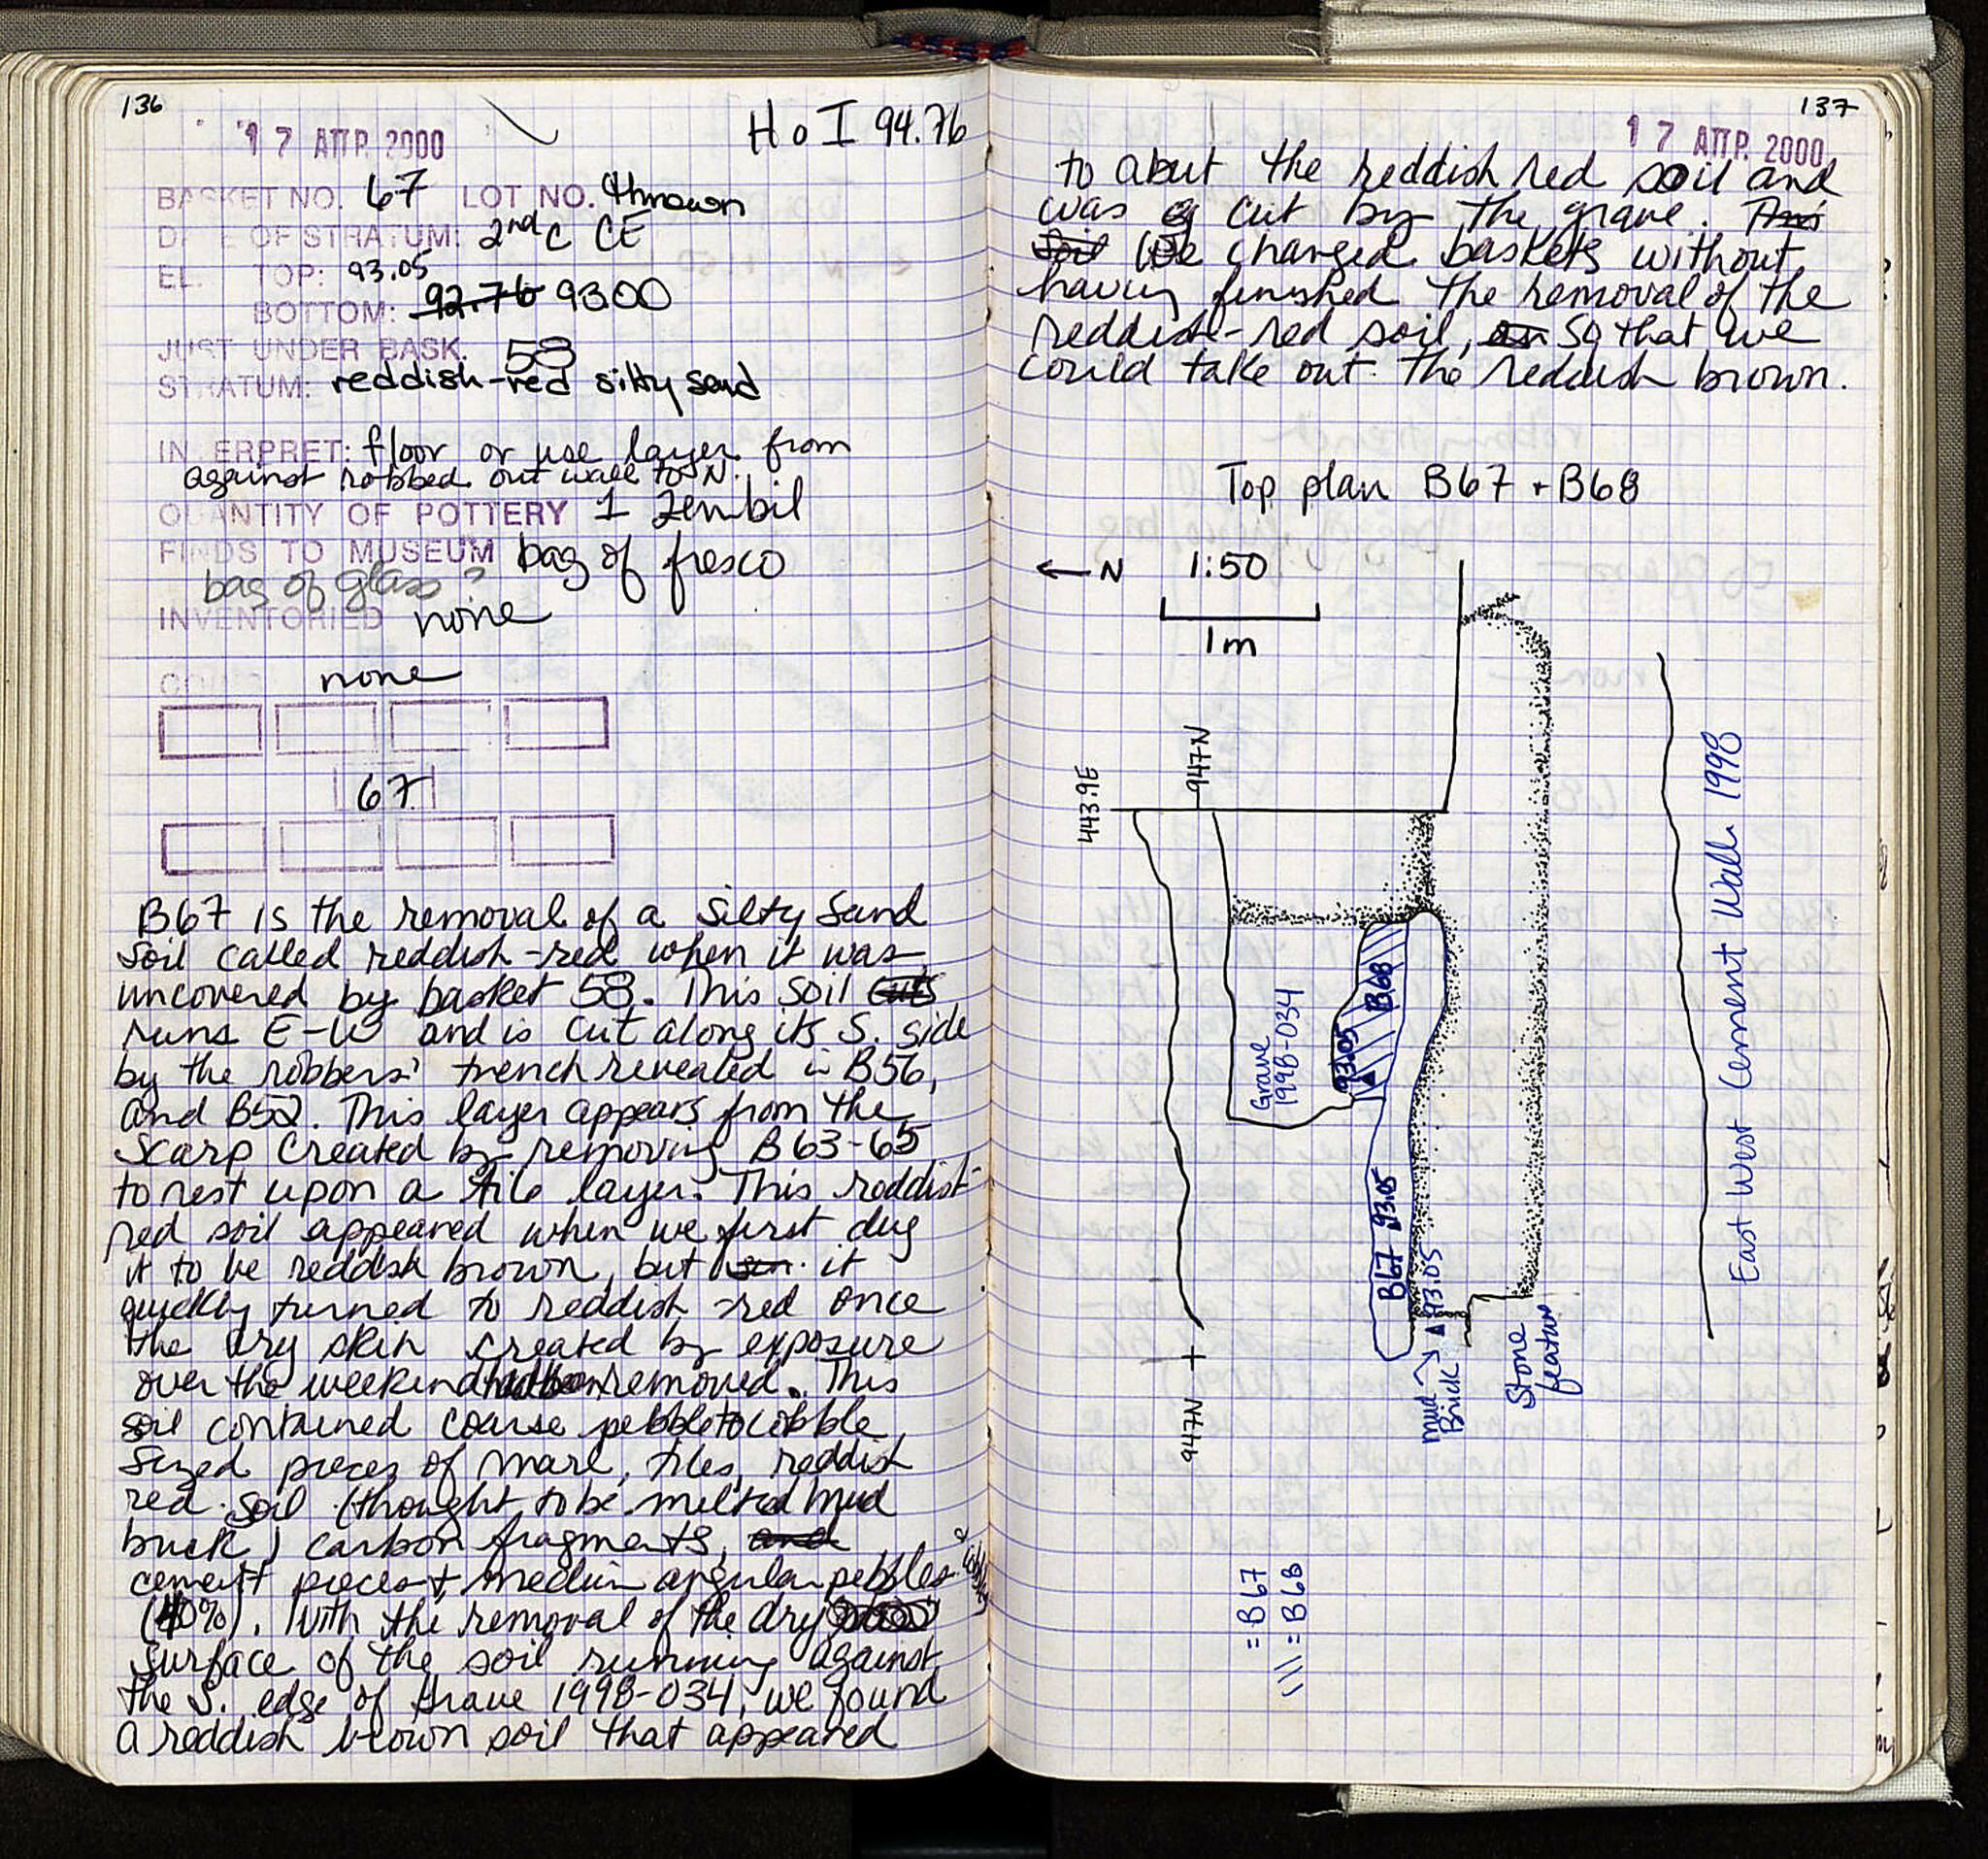 136
17 ΑΠΡ. 2000
H o I 94.76
BASKET NO. 67 LOT NO. thrown
DATE OF STRATUM: 2nd C CE
EL. TOP: 93.05
BOTTOM: 92.76 93.00
JUST UNDER BASK. 58
STRATUM: reddish-red silty sand
INTERPRET: floor or use layer from
against robbed out wall to N.
QUANTITY OF POTTERY 1 Zembil
FINDS TO MUSEUM bag of fresco
bag of glass?
INVENTORIED none
COINS none
67
B67 is the removal of a silty sand
soil called reddish-red when it was
uncovered by basket 58. This soil cuts
runs E-W and is cut along its S. side
by the robbers' trench revealed in B56,
and B52. This layer appears from the
scarp created by removing B63-65
to rest upon a tile layer. This reddish-
red soil appeared when we first dug
it to be reddish brown, but it
quickly turned to reddish-red once
the dry skin created by exposure
over the weekend had been removed. This
soil contained coarse pebble to cobble
sized pieces of marl, tiles, reddish
red soil (thought to be melted mud
brick) carbon fragments, and
cement pieces + medium angular pebbles
(40%). With the removal of the dry
surface of the soil running against
the S. edge of Grave 1998-034, we found
a reddish brown soil that appeared
137
17 ΑΠΡ. 2000
to abut the reddish red soil and
was cut by the grave. This
soil We changed baskets without
having finished the removal of the
reddish-red soil, so that we
could take out the reddish brown.
Top plan B67 + B68
← N 1:50
1m
443.9E
947N
Grave
1998-034
93.05
B68
B67 93.05
93.05
Mud
Brick
Stone
feature
East West Cement Wall 1998
947N
= B67
\\\ = B68